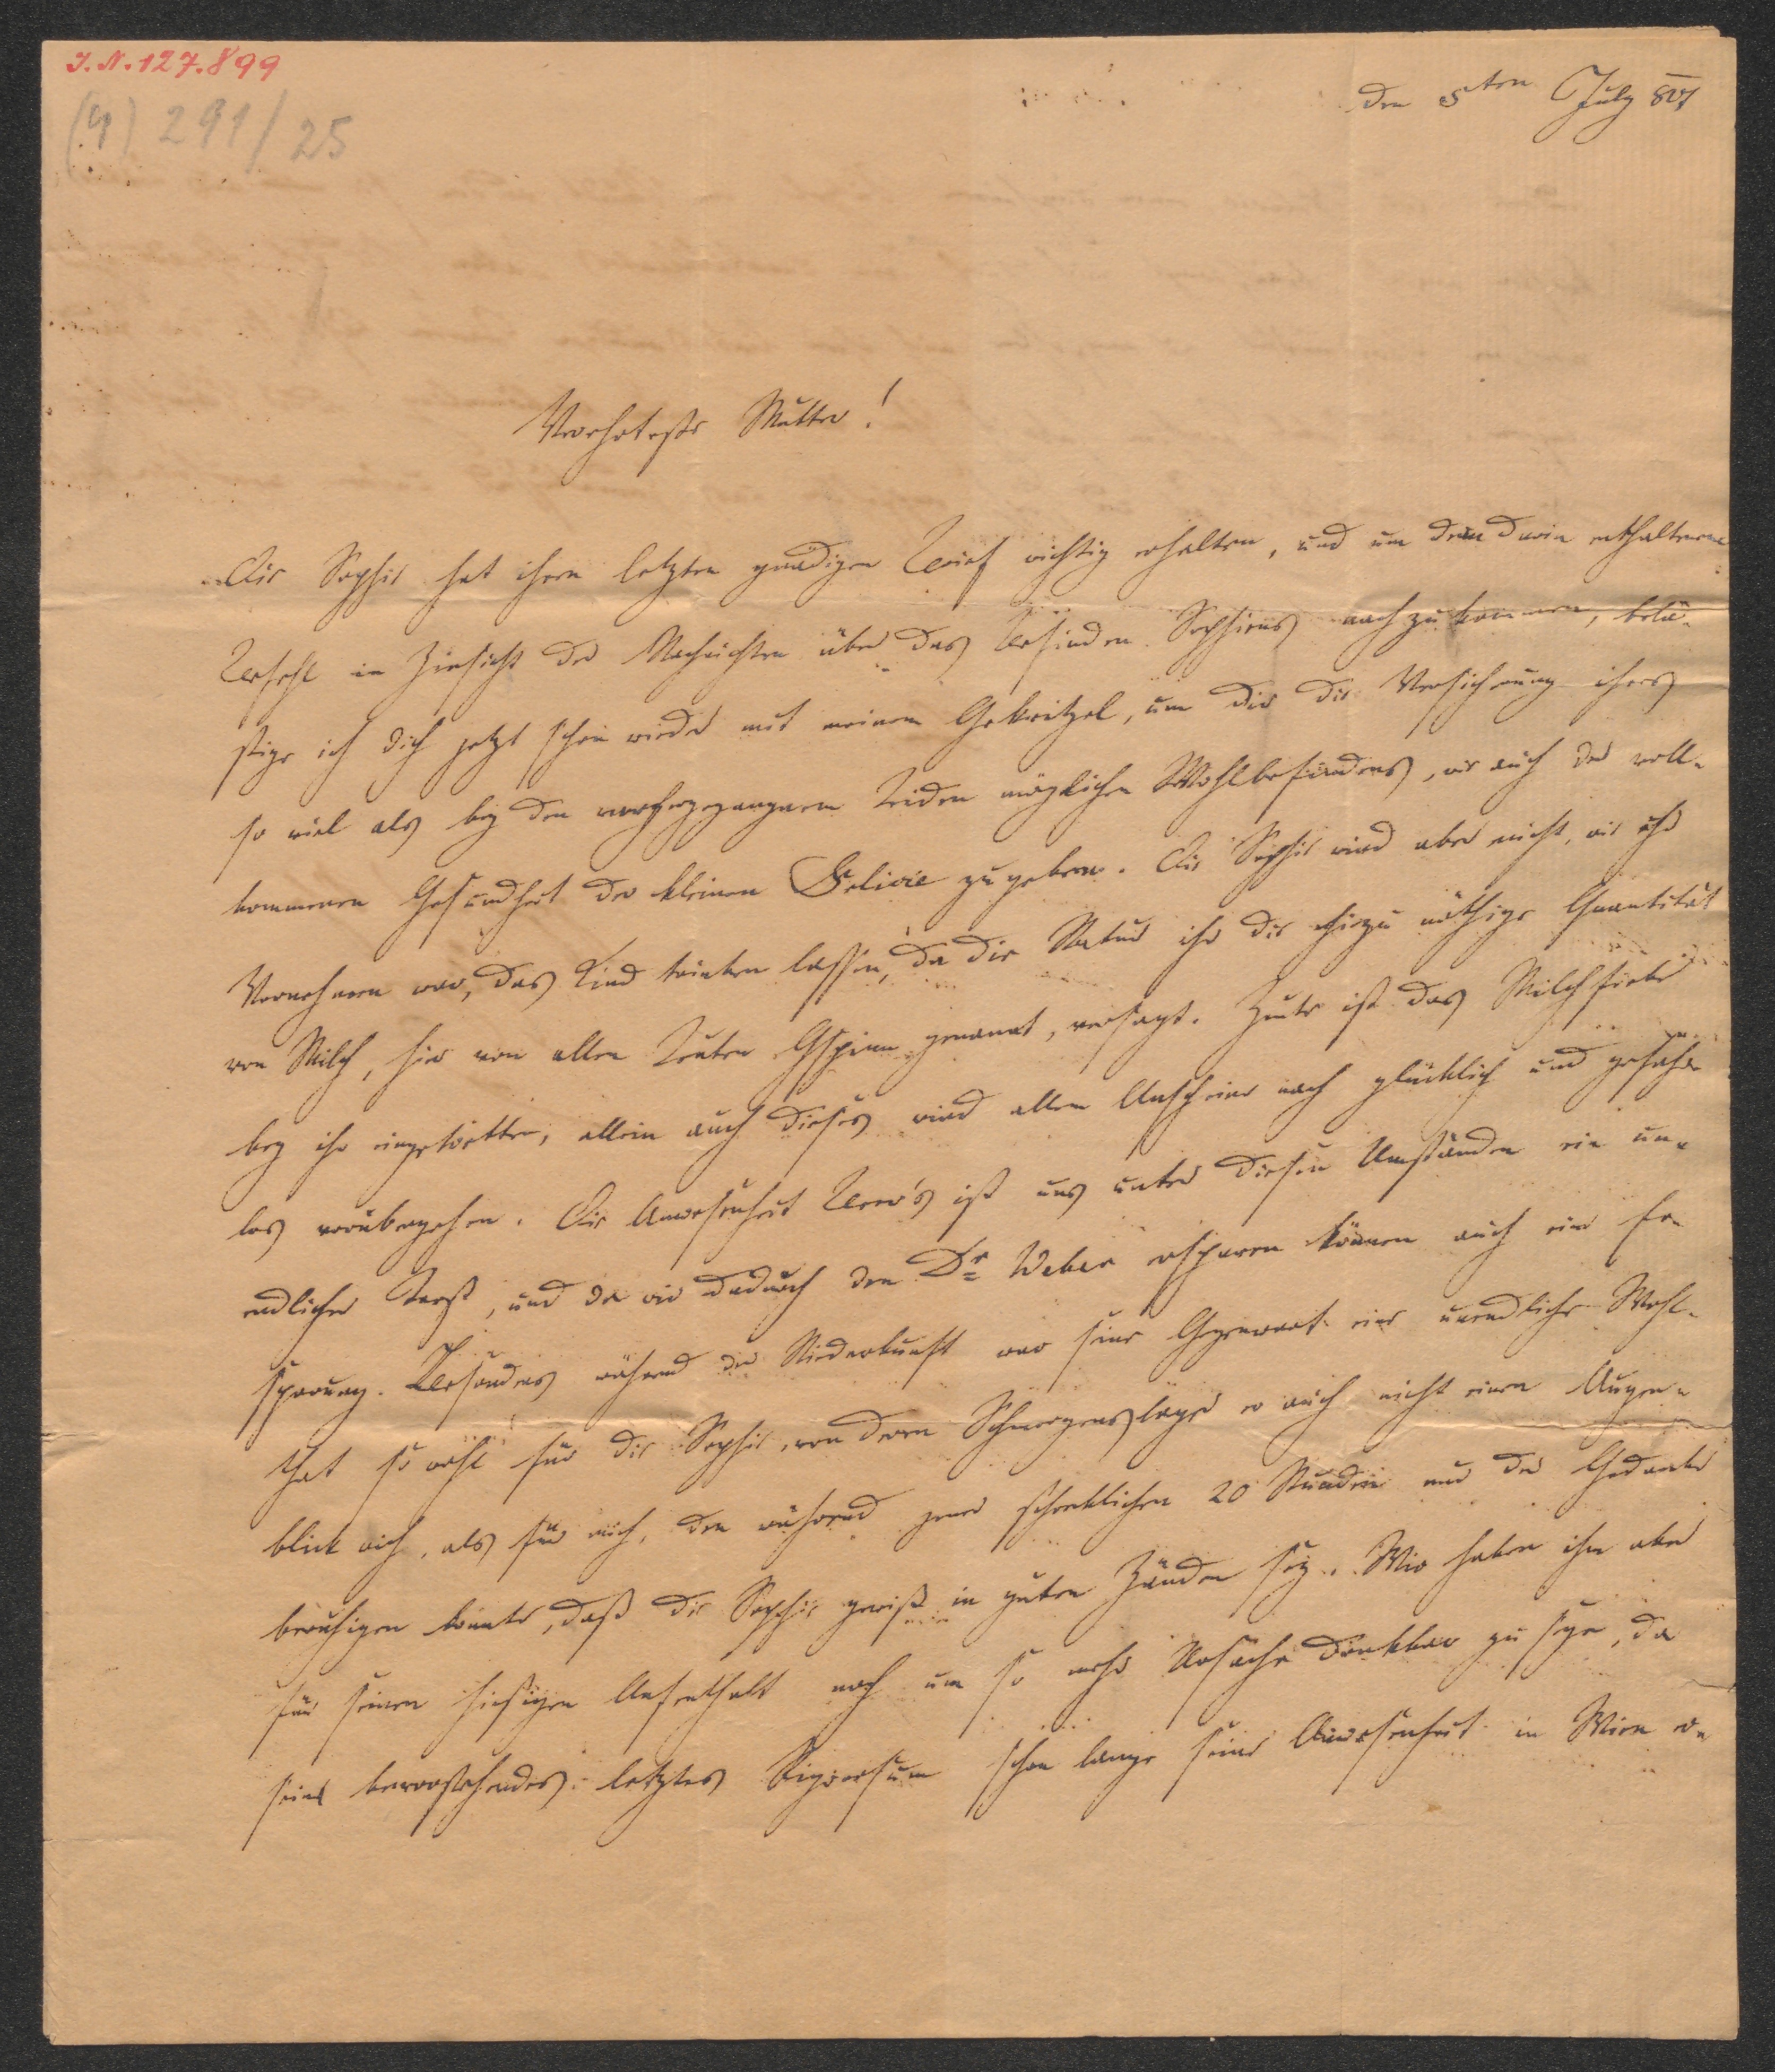 I.N. 127.899
(4) 291/25
den 5ten July 807
Verehrteste Mutter!
Die Sophie hat ihren letzten gnädigen Brief richtig erhalten, und um dem darin enthaltenen
Befehl in Hinsicht der Nachrichten über das Befinden Sophiens nachzukommen, belä-
stige ich dich jetzt schon wieder mit meinem Gekritzel, um dir die Versicherung ihres
so viel als bey den vorhergegangenen Leiden möglichen Wohlbefindens, wie auch der voll-
kommenen Gesundheit der kleinen Felicie zu geben. Die Sophie wird aber nicht, wie ihr
Vornehmen war, das Kind trinken lassen, da die Natur ihr die hiezu nöthige Quantität
von Milch, hier von allen Leuten Gspinn genannt, versagt. Heute ist das Milchfieber
bey ihr eingetretten, allein auch dieses wird allem Anscheine nach glücklich und gefahr-
los vorübergehen. Die Anwesenheit ist uns unter diesen Umständen ein un-
endlicher Trost, und da wir dadurch den Dr Weber ersparen können auch eine Er-
sparung. Besonders während der Niederkunft war seine Gegenwart eine unendliche Wohl-
that so wohl für die Sophie, von deren Schmerzenslager er auch nicht einen Augen-
blick wich, als für mich, den während jener schreklichen 20 Stunden nur der Gedanke
beruhigen konnte, daß die Sophie gewiß in guten Händen sey. Wir haben ihm aber
für seinen hiesigen Aufenthalt noch um so mehr Ursache dankbar zu seyn, da
sein bevorstehendes letztes Rigorosum schon lange seine Anwesenheit in Wien er-